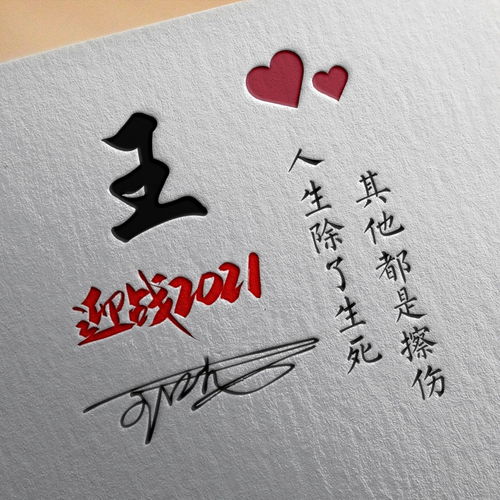 王
迎战2021
人生除了生死
其他都是擦伤